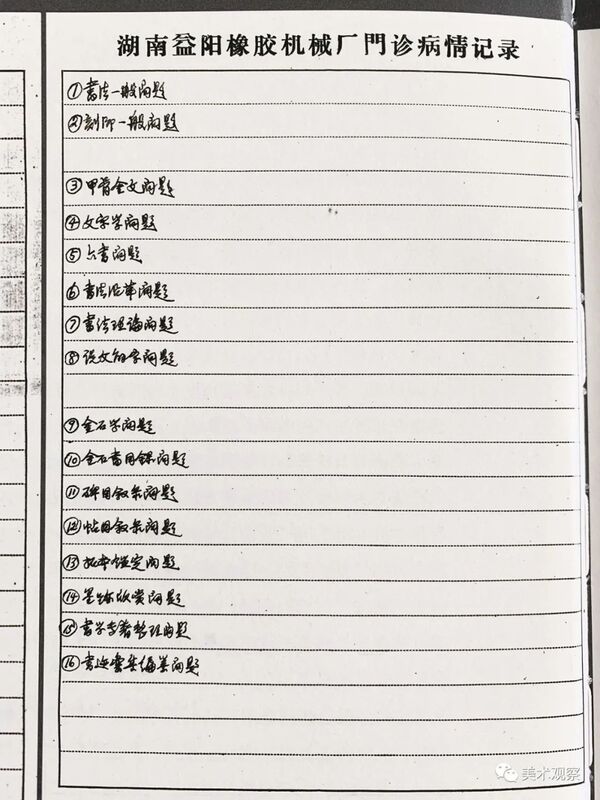 湖南益阳橡胶机械厂門诊病情记录
①書法一般问题
②刻印一般问题
③甲骨金文问题
④文字学问题
⑤六書问题
⑥書法沿革问题
⑦書法理論问题
⑧说文解字问题
⑨金石学问题
⑩金石書目録问题
⑪碑目叙录问题
⑫帖目叙录问题
⑬拓本鑑定问题
⑭墨跡欣赏问题
⑮書学专著整理问题
⑯書迹彙集编纂问题
美术观察